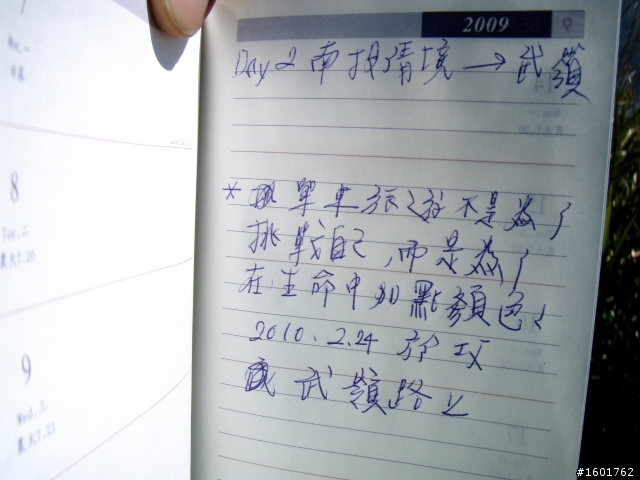 2009
9
Day 2 南投清境→武嶺
*單車旅遊不是為了
挑戰自己,而是為了
在生命中加點顏色!
2010.2.24 於攻
武嶺路上
Mon.一
8
Tue.二
農大7.20
9
Wed.三
農大7.21
#1601762